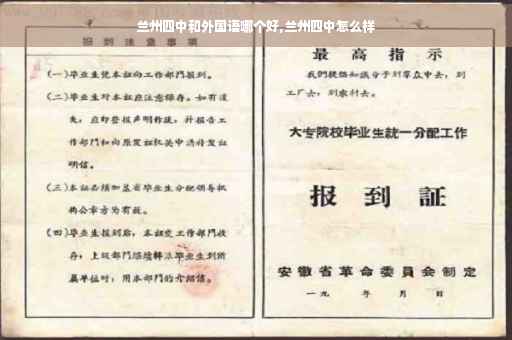 兰州四中和外国语哪个好,兰州四中怎么样
报到注意事项
(一)毕业生凭本证向工作部门报到。
(二)毕业生对本证应注意保存。如有遗
失,应即登报声明作废,并报告工
作部门和向原发证机关申请补发证
明信。
(三)本证必须加盖省毕业生分配领导机
构公章方为有效。
(四)毕业生报到后,本证交工作部门收
存;上级部门继续转派毕业生到所
属单位时,用本部门的介绍信。
最高指示
我们提倡知识分子到群众中去,到
工厂去,到农村去。
大专院校毕业生统一分配工作
报到証
安徽省革命委員会制定
一九 年 月 日